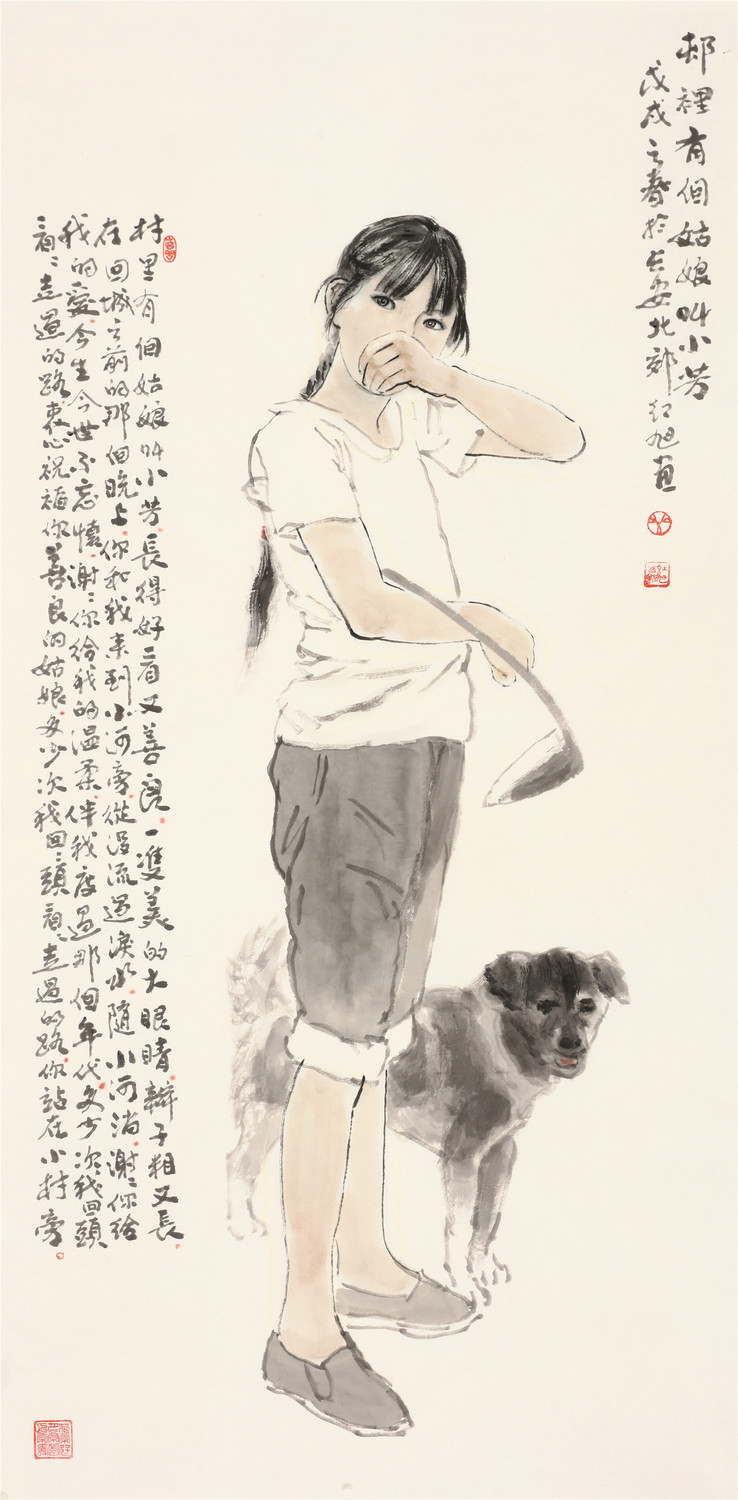 邨裡有個姑娘叫小芳
戊戌之春於长安北郊紅旭画
村里有個姑娘叫小芳長得好看又善良一雙美的大眼睛辮子粗又長
在回城之前的那個晚上你和我来到小河旁從没流過淚水隨小河淌謝〻你给
我的愛今生今世不忘懷謝〻你给我的温柔伴我度過那個年代多少次我回頭
看〻走過的路衷心祝福你善良的姑娘多少次我回〻頭看〻走過的路你站在小村旁